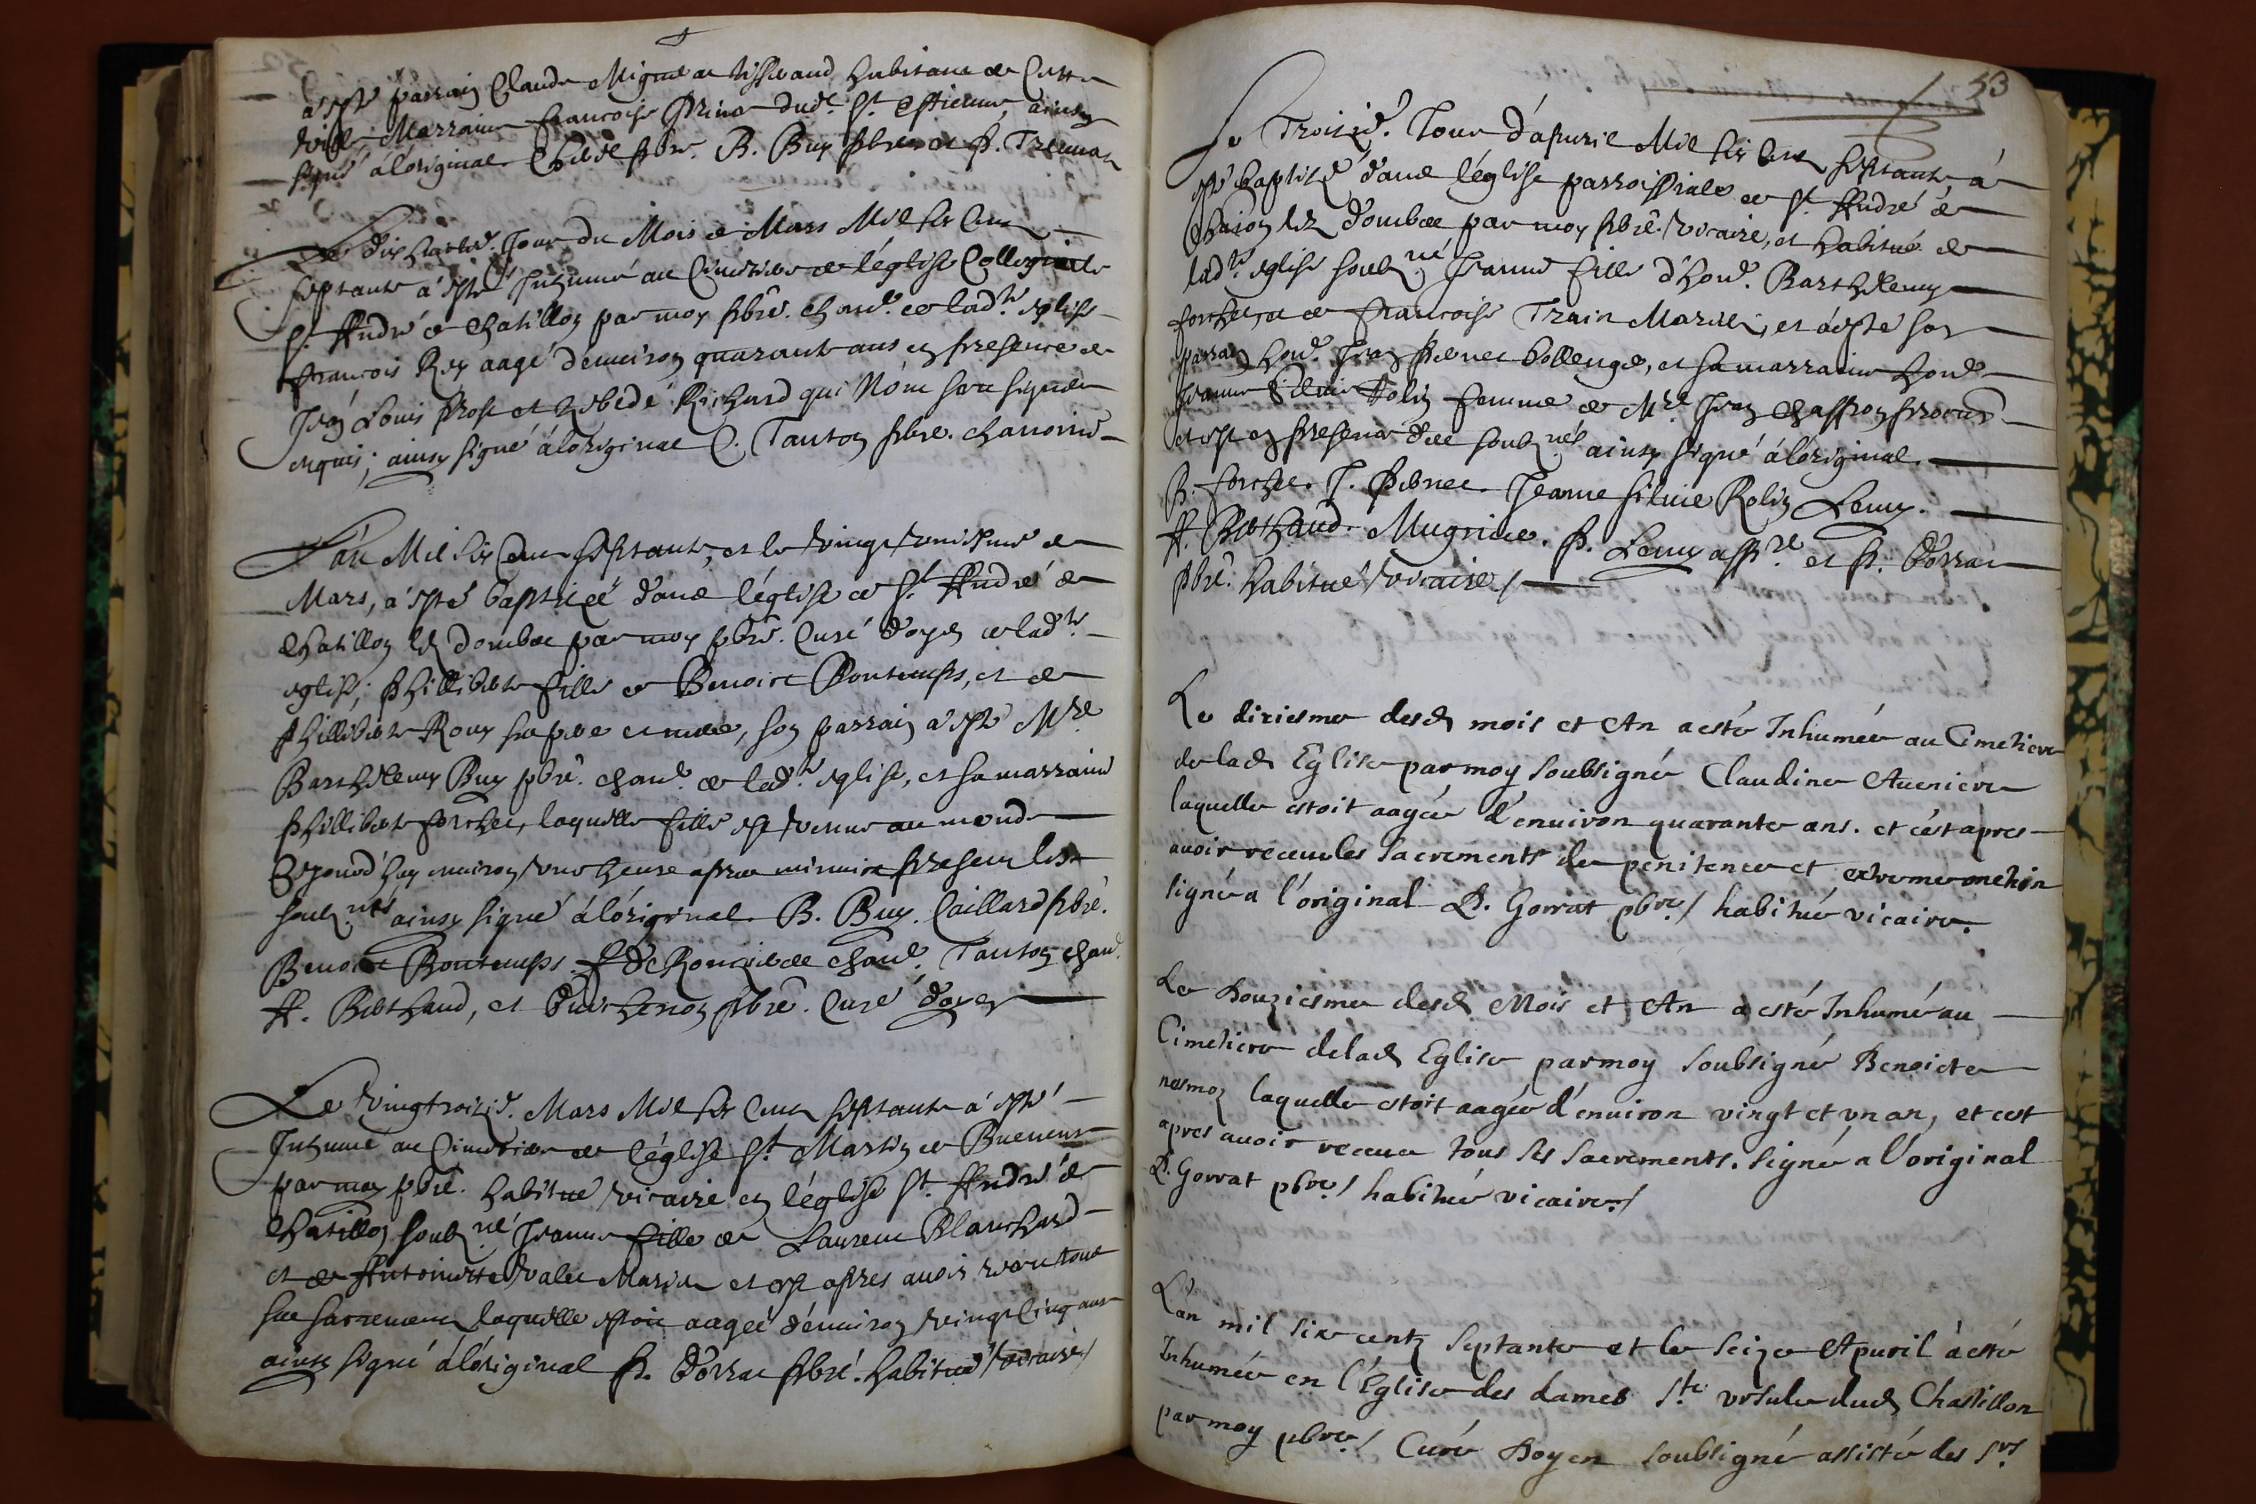 a esté parrain Claude Mignot tisserand habitant de Cette
ville, Marraine francoise dud.t S.t Estienne ainsy
signé à l'original pbre. B. Buy pbre et
Le dix huictie. Jour du Mois de Mars Mil six Cens
septante à esté Inhumé au Cimetiere de l'église Collegiale
S.t André de Chatillon par moy pbre. chane. de lad.te eglise
francois Rey aagé d'enuiron quarante ans en presence de
Jean Louis et Richard qui N'ont sceu signer
enquis; ainsy signé à l'original C. Tanton pbre. chanoine
L'an Mil six Cens septante, et le vingt vniesme de
Mars, à esté baptizée dans l'église de S.t André de
Chatillon les dombes par moy pbre. Curé doyen de lad.te
eglise; Philliberte fille de Benoict Bontemps, et de
Philliberte Roux ses pere et mere, son parrain a esté M.re
Barthelemy Buy pbre. chane. de lad.te eglise, et sa marraine
Philliberte forchet, laquelle fille est venue au monde
Ce jourd'huy enuiron vne heure apres minuict presens les
soubz.nés ainsy signé à l'original. B. Buy. Caillard pbre.
Benoict Bontemps. chane. Tanton chane.
A. Berthaud, et Duchenon pbre. Curé doyen
Le vingtroisie. Mars Mil six Cens septante à esté
Inhumé au Cimetiere de l'église S.t Martin de Buenens
par moy pbre. habitué vicaire en l'église S.t André de
Chatillon soubz.né Jeanne fille de Laurent Blanchard
et de Antoinette Valet Mariés et c'est apres auoir receu tous
ses sacremens laquelle estoit aagée d'enuiron vingt Cinq ans
ainsy signé à l'original P. Gorrat pbre. habitué vicaire /
53
Le Troisie. Jour d'apuril Mil six Cens septante, à
esté baptizé dans l'église parroissiale de S.t André de
Chatillon les dombes par moy pbre. vicaire, et habitué de
lad.te eglise soubz.né Jeanne fille d'hon.e Barthelemy
forchet, et de francoise Train Mariés, et à esté son
parrain hon.e Jean Perret, et sa marraine hon.e
Jeanne Siluie Rolin femme de M.re Jean Chaffron procur.
et c'est en presence des soubz.nés ainsy signé à l'original.
B. forchet. J. Perret. Jeanne siluie Rolin Lemy.
A. Berthaud. Mugnier. P. Lemy et P. Gorrat
pbre. habitué vicaire /
Le diziesme desd. mois et An a esté Inhumée au Cimetiere
de lad. Eglise par moy soubsigné Claudine Aueniere
laquelle estoit aagée d'enuiron quarante ans. et c'est apres
auoir receu les Sacrements de penitence et extreme onction
signé a l'original P. Gorrat pbre / habitué vicaire.
Le Douziesme desd. Mois et An a esté Inhumé au
Cimetiere de lad. Eglise par moy soubsigné Benoicte
nesmoz laquelle estoit aagée d'enuiron vingt et vn an, et est
apres auoir receue tous ses Sacrements. signé a l'original
P. Gorrat pbre / habitué vicaire /
L'an mil six centz septante et le seize Apuril à esté
Inhumée en l'Eglise des dames S.te vrsule dud. Chastillon
par moy pbre / Curé Doyen soubsigné assisté des S.rs